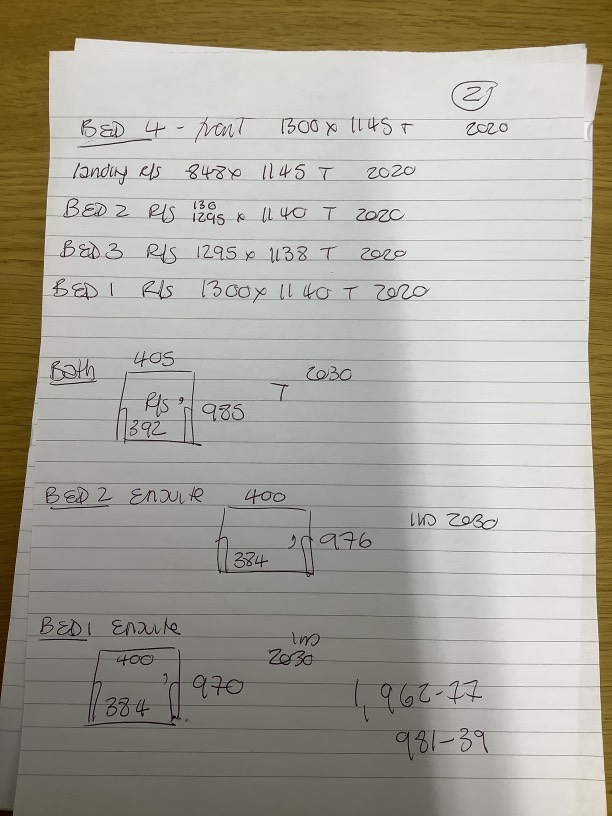 2
BED 4 - front 1300 x 1145 T 2020
landing R/S 848 x 1145 T 2020
BED 2 R/S 130 1295 x 1140 T 2020
BED 3 R/S 1295 x 1138 T 2020
BED 1 R/S 1300 x 1140 T 2020
Bath 405 T 2030
R/S 985
392
BED 2 Ensuite 400
976 2030
384
BED 1 Ensuite
400 2030
970
384
1,962-77
981-39